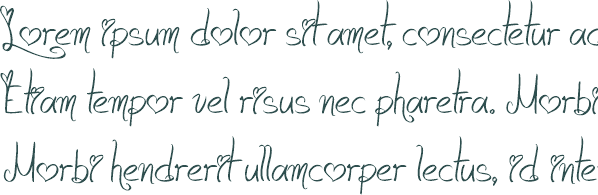 Lorem ipsum dolor sit amet, consectetur ac
Etiam tempor vel risus nec pharetra. Morbi
Morbi hendrerit ullamcorper lectus, id inte